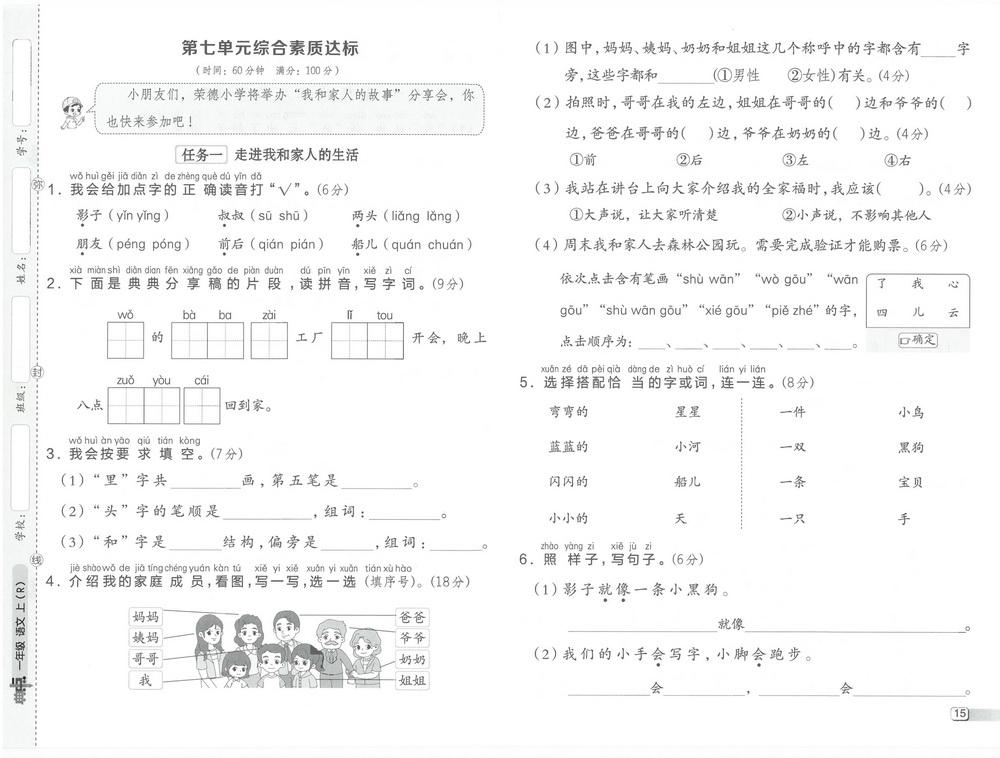 第七单元综合素质达标
(时间：60分钟　满分：100分)
小朋友们，荣德小学将举办“我和家人的故事”分享会，你
也快来参加吧！
任务一　走进我和家人的生活
wǒ huì gěi jiā diǎn zì de zhèng què dú yīn dǎ
1. 我会给加点字的正确读音打“√”。(6分)
影子(yǐn yǐng)　叔叔(sū shū)　两头(liǎng lǎng)
朋友(péng póng)　前后(qián pián)　船儿(quán chuán)
xià miàn shì diǎn dian fēn xiǎng gǎo de piàn duàn　dú pīn yīn　xiě zì cí
2. 下面是典典分享稿的片段，读拼音，写字词。(9分)
wǒ　bà ba　zài　lǐ tou
的　工厂　开会，晚上
zuǒ yòu　cái
八点　回到家。
wǒ huì àn yāo qiú tián kòng
3. 我会按要求填空。(7分)
(1)“里”字共______画，第五笔是______。
(2)“头”字的笔顺是______，组词：______。
(3)“和”字是______结构，偏旁是______，组词：______。
jiè shào wǒ de jiā tíng chéng yuán kàn tú　xiě yi xiě xuǎn yi xuǎn tián xù hào
4. 介绍我的家庭成员，看图，写一写，选一选(填序号)。(18分)
妈妈　爸爸
姨妈　爷爷
哥哥　奶奶
我　姐姐
(1) 图中，妈妈、姨妈、奶奶和姐姐这几个称呼中的字都含有____字
旁，这些字都和______(①男性　②女性)有关。(4分)
(2) 拍照时，哥哥在我的左边，姐姐在哥哥的(　)边和爷爷的(　)
边，爸爸在哥哥的(　)边，爷爷在奶奶的(　)边。(4分)
①前　②后　③左　④右
(3) 我站在讲台上向大家介绍我的全家福时，我应该(　)。(4分)
①大声说，让大家听清楚　②小声说，不影响其他人
(4) 周末我和家人去森林公园玩。需要完成验证才能购票。(6分)
依次点击含有笔画“shù wān”“wò gōu”“wān
gōu”“shù wān gōu”“xié gōu”“piě zhé”的字，
点击顺序为：____、____、____、____、____、____。
了　我　心
四　儿　云
确定
xuǎn zé dā pèi qià dàng de zì huò cí　lián yi lián
5. 选择搭配恰当的字或词，连一连。(8分)
弯弯的　星星　一件　小鸟
蓝蓝的　小河　一双　黑狗
闪闪的　船儿　一条　宝贝
小小的　天　一只　手
zhào yàng zi　xiě jù zi
6. 照样子，写句子。(6分)
(1) 影子就像一条小黑狗。
______就像______。
(2) 我们的小手会写字，小脚会跑步。
______会______，______会______。
15
学号：
姓名：
班级：
学校：
弥
封
线
典中点 一年级 语文 上(R)